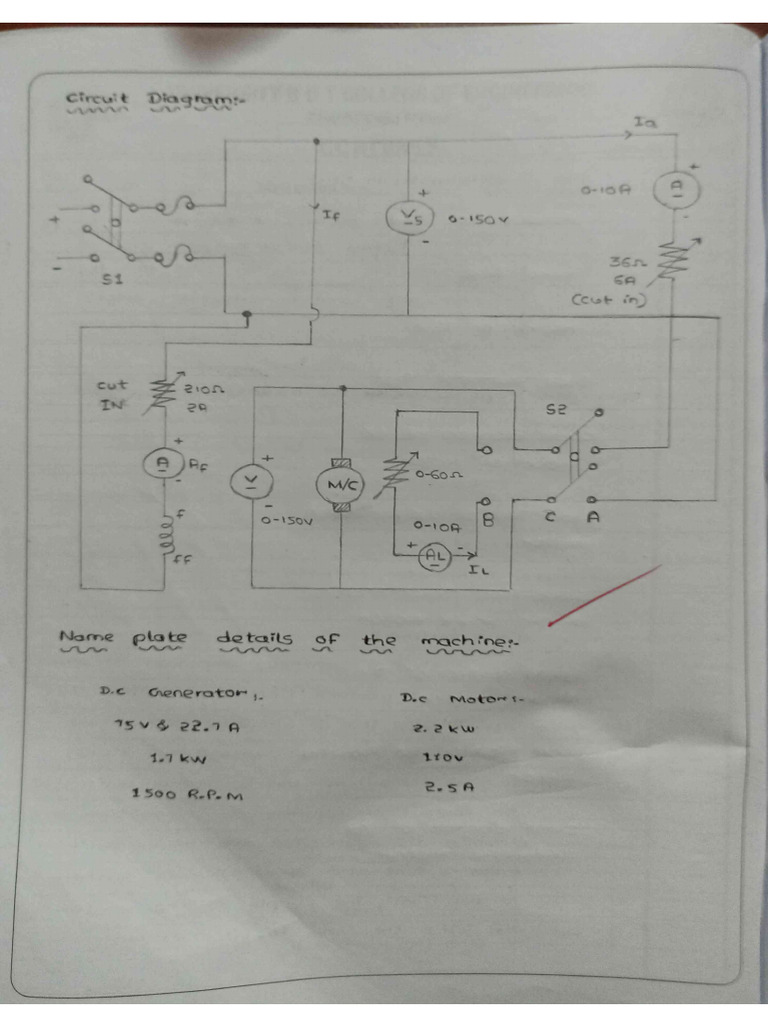 Circuit Diagram:-
Ia
+
0-10A
A
-
+
If
VS
0-150V
-
+
-
S1
36Ω
6A
(cut in)
cut
IN
210Ω
2A
S2
+
A
Af
-
+
V
-
0-150V
M/C
0-60Ω
0-10A
B
C
A
+
AL
-
IL
f
ff
Name plate details of the machine:-
D.c Generator:-
D.c Motor:-
75V & 22.7A
2.2kW
1.7kW
110V
1500 R.P.M
2.5A